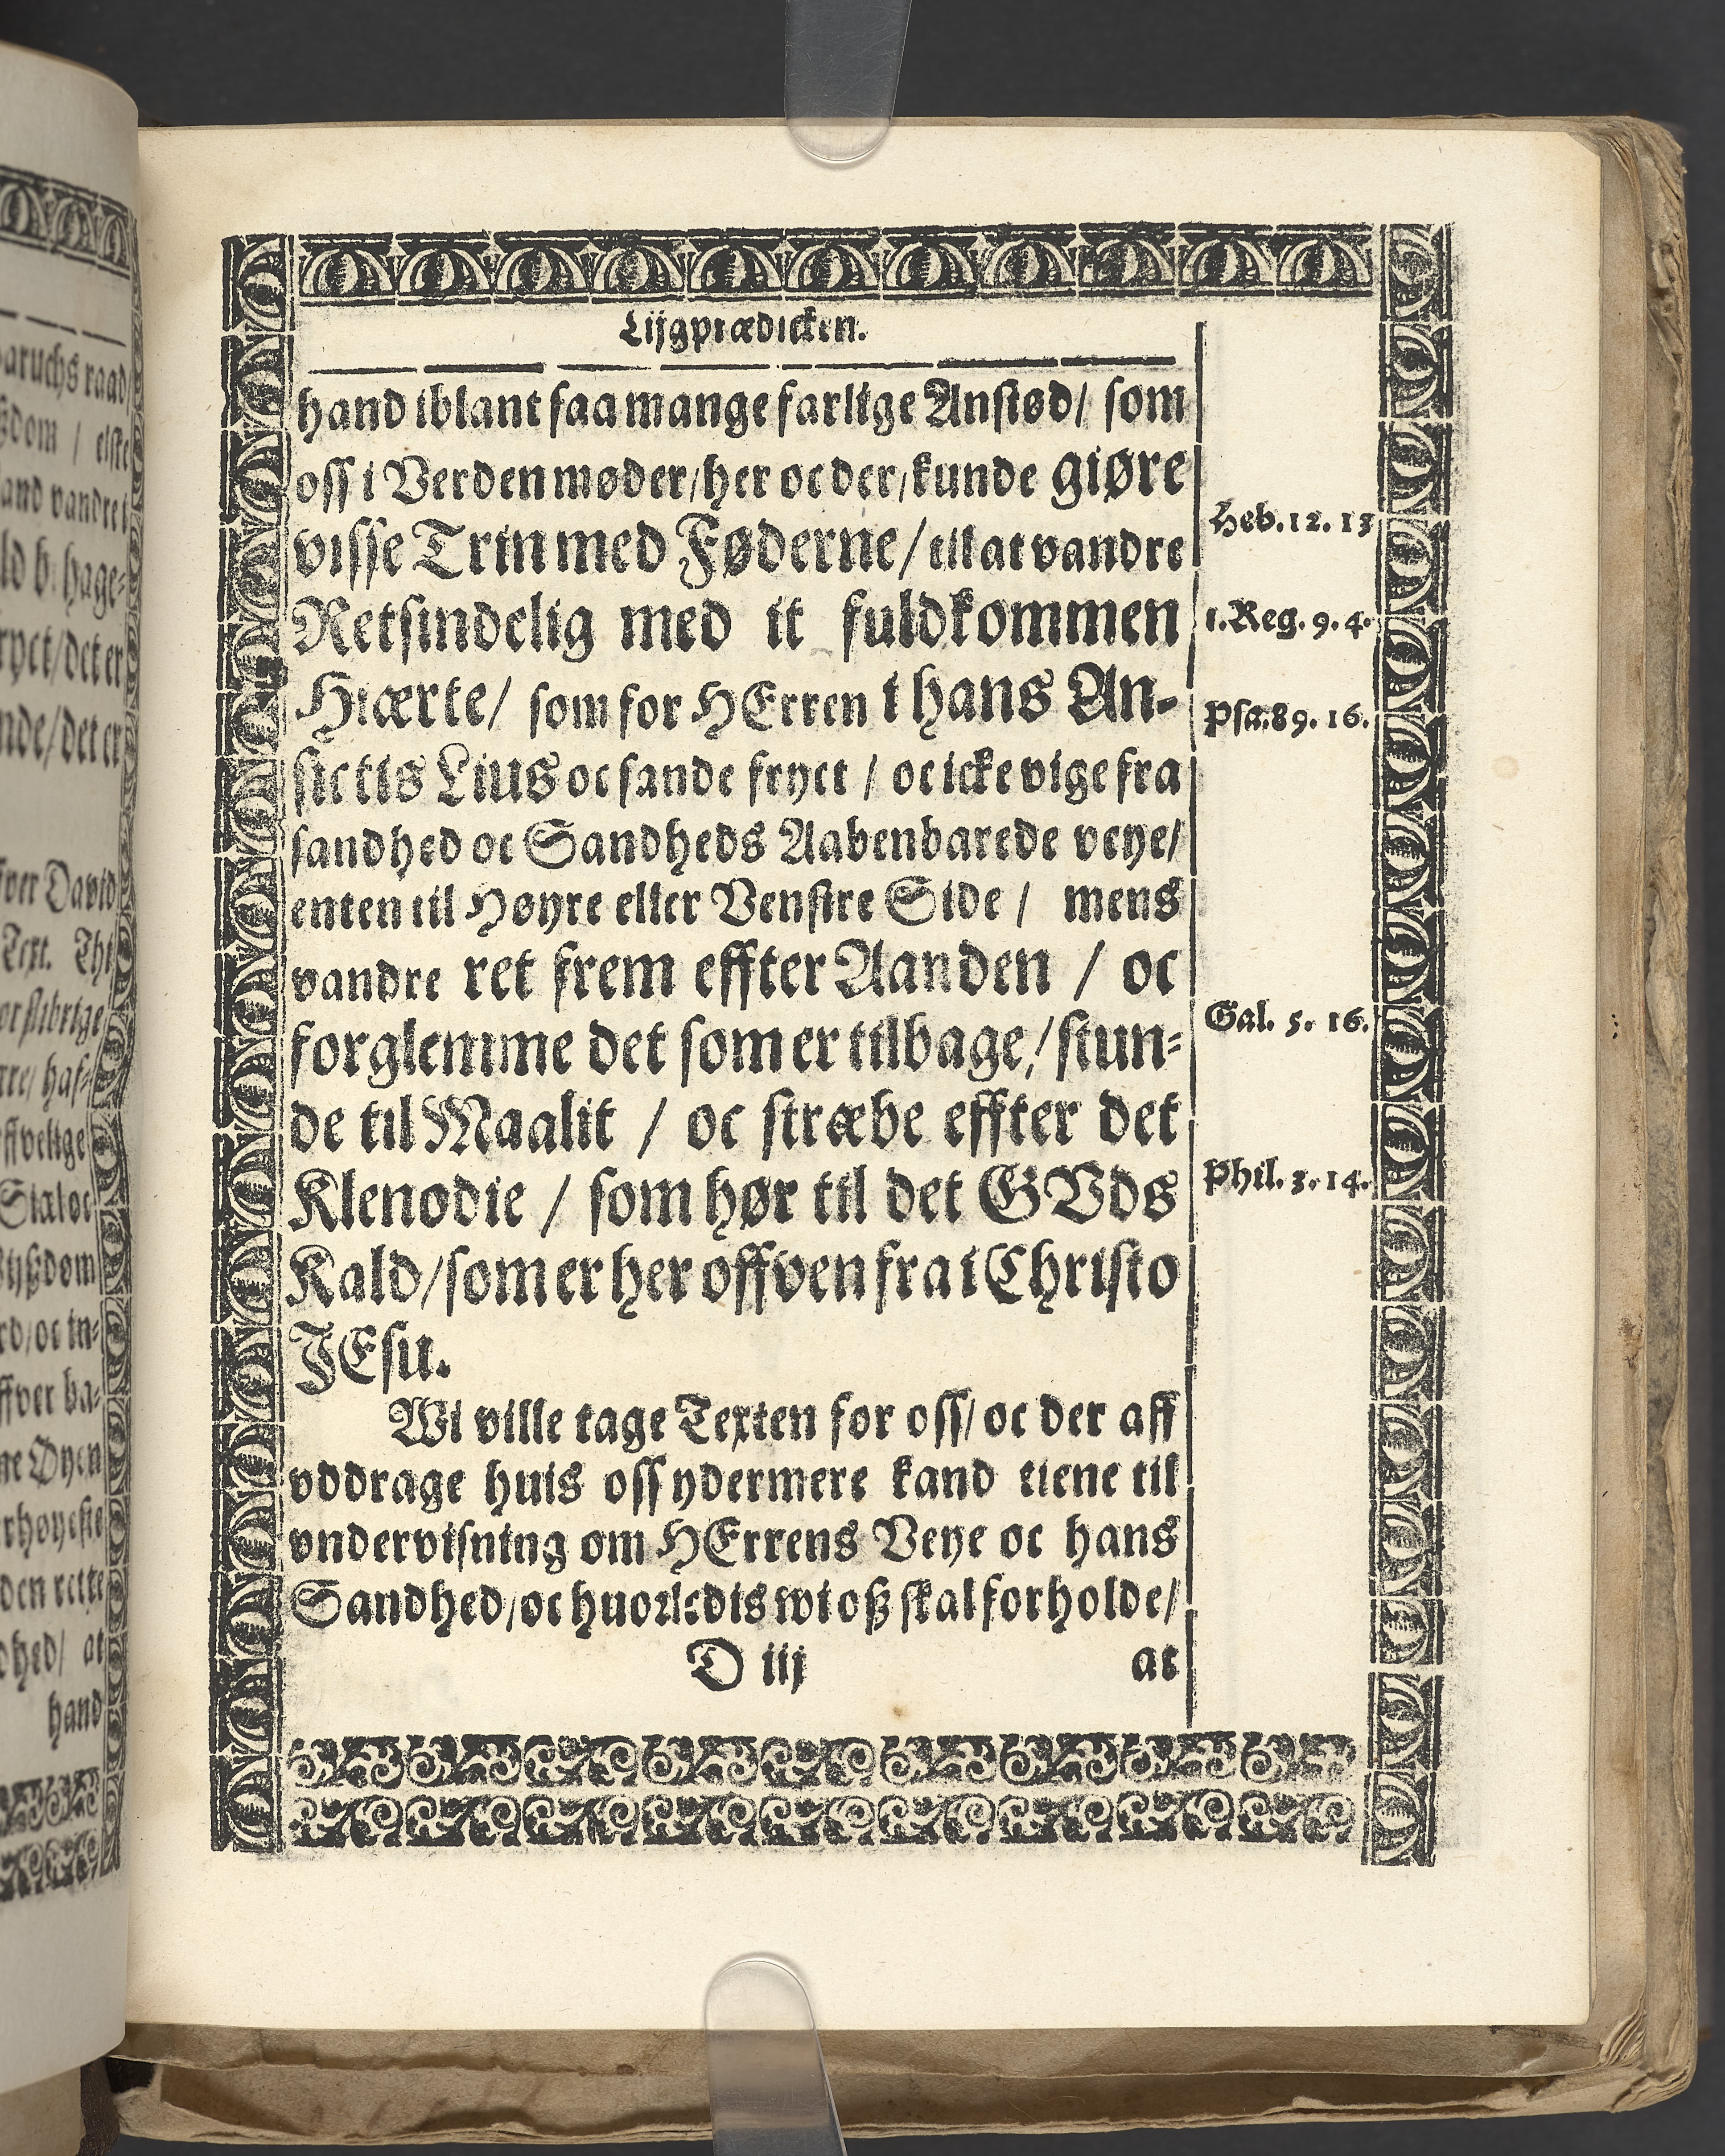 Lijgprædicken.
hand iblant saa mange farlige Anstød/ som
oss i Verden møder/her oc der/kunde giøre
visse Trin med Føderne/till at vandre
Heb. 12. 13
Retsindelig med it fuldkommen
1. Reg. 9. 4.
Hiærte/ som for HErren i hans An-
Psa. 89. 16.
sictis Lius oc sande fryct / oc icke vige fra
sandhed oc Sandheds Aabenbarede veye/
enten til Høyre eller Venstre Side / mens
vandre ret frem effter Aanden / oc
Gal. 5. 16.
forglemme det som er tilbage/ stun-
de til Maalit / oc stræbe effter det
Klenodie / som hør til det GVds
Phil. 3. 14.
Kald/som er her offven fra i Christo
JEsu.
Wi ville tage Texten for oss/ oc der aff
vddrage huis oss ydermere kand tiene til
vndervisning om HErrens Veye oc hans
Sandhed/oc huorledis wi oß skal forholde/
D iij
at
aruchs raad/
and vandret i
ryct/det er
nde/det er
fver David
Text. Thi
or slibrige
rre/ haf-
den rette
dhed/ at
hand